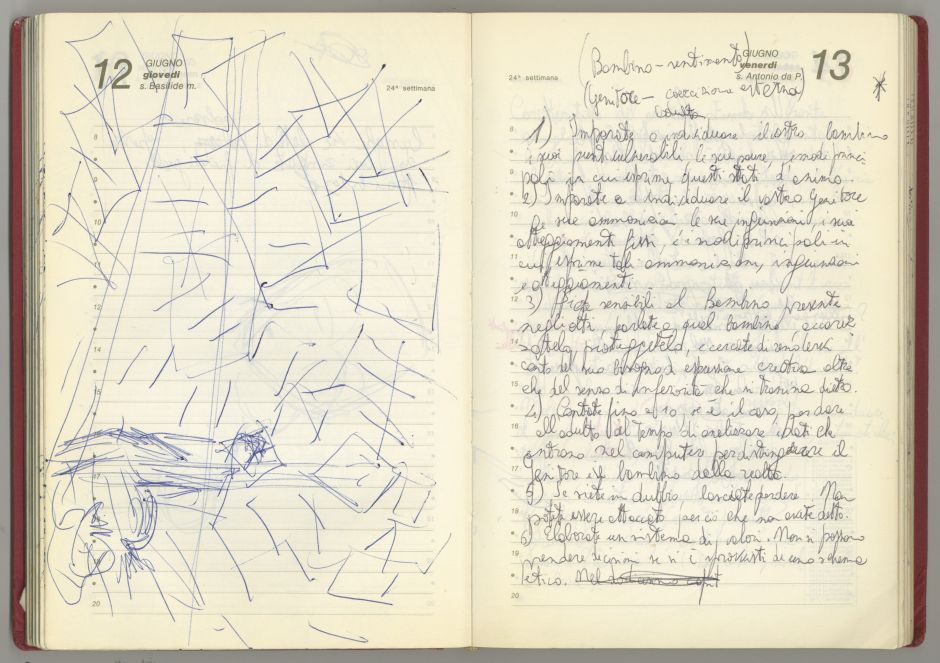 12
GIUGNO
giovedì
s. Basilide m.
24ª settimana
8
9
10
11
12
14
15
16
17
18
19
20
GIUGNO
venerdì
s. Antonio da P.
13
24ª settimana
(Bambino - sentimento)
(Genitore - coercizione esterna)
Adulto
1) Imparate a individuare il vostro bambino
i suoi punti vulnerabili le sue paure i modi princi
pali in cui esprime questi stati d'animo.
2) Imparate a individuare il vostro Genitore
le sue ammonizioni le sue ingiunzioni, i suoi
atteggiamenti fissi, e i modi principali in
cui esprime tali ammonizioni, ingiunzioni
e atteggiamenti.
3) Siate sensibili al Bambino presente
negli altri, parlate a quel bambino accarez
zatelo, proteggetelo, e cercate di rendervi
conto del suo bisogno d espressione creativa oltre
che del senso di inferiorità che si trascina dietro.
4) Contate fino a 10, se è il caso, per dare
all adulto il tempo di analizzare i dati che
entrano nel computer per distinguere il
Genitore e il bambino dalla realtà.
5) Se siete in dubbio lasciate perdere. Non
potete essere attaccati per ciò che non avete detto.
6) Elaborate un sistema di valori. Non si possono
prendere decisioni se si è sprovvisti di uno schema
etico. Nel
8
9
10
11
12
14
15
16
17
18
19
20